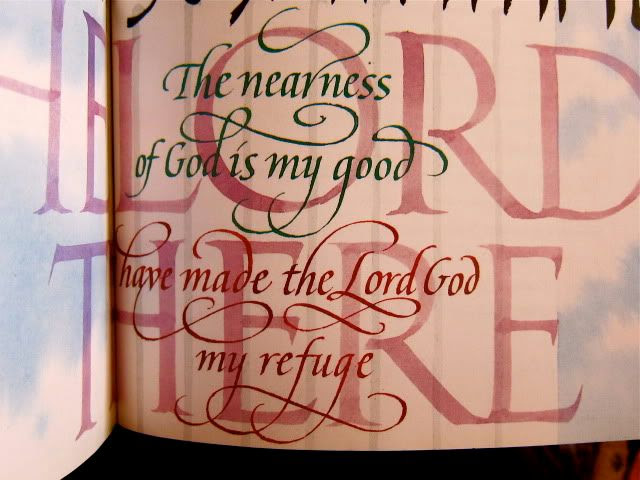 LORD
The nearness
of God is my good
THERE
have made the Lord God
my refuge